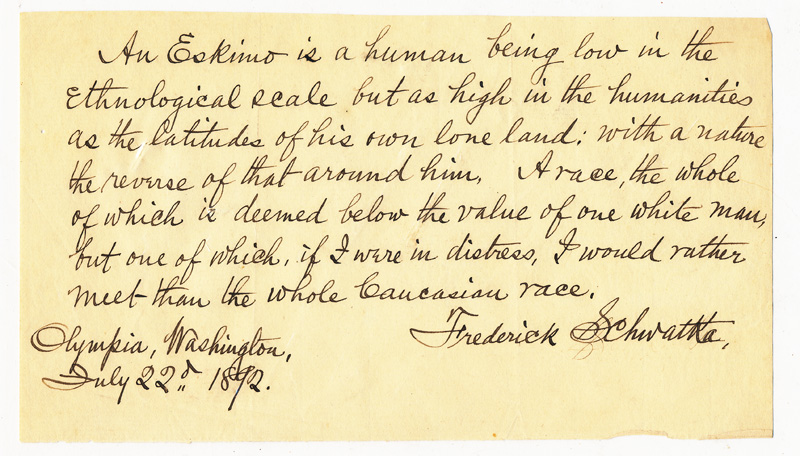 An Eskimo is a human being low in the
Ethnological scale but as high in the humanities
as the latitudes of his own lone land: with a nature
the reverse of that around him. A race, the whole
of which is deemed below the value of one white man,
but one of which, if I were in distress, I would rather
meet than the whole Caucasian race.
Frederick Schwatka,
Olympia, Washington,
July 22d 1892.